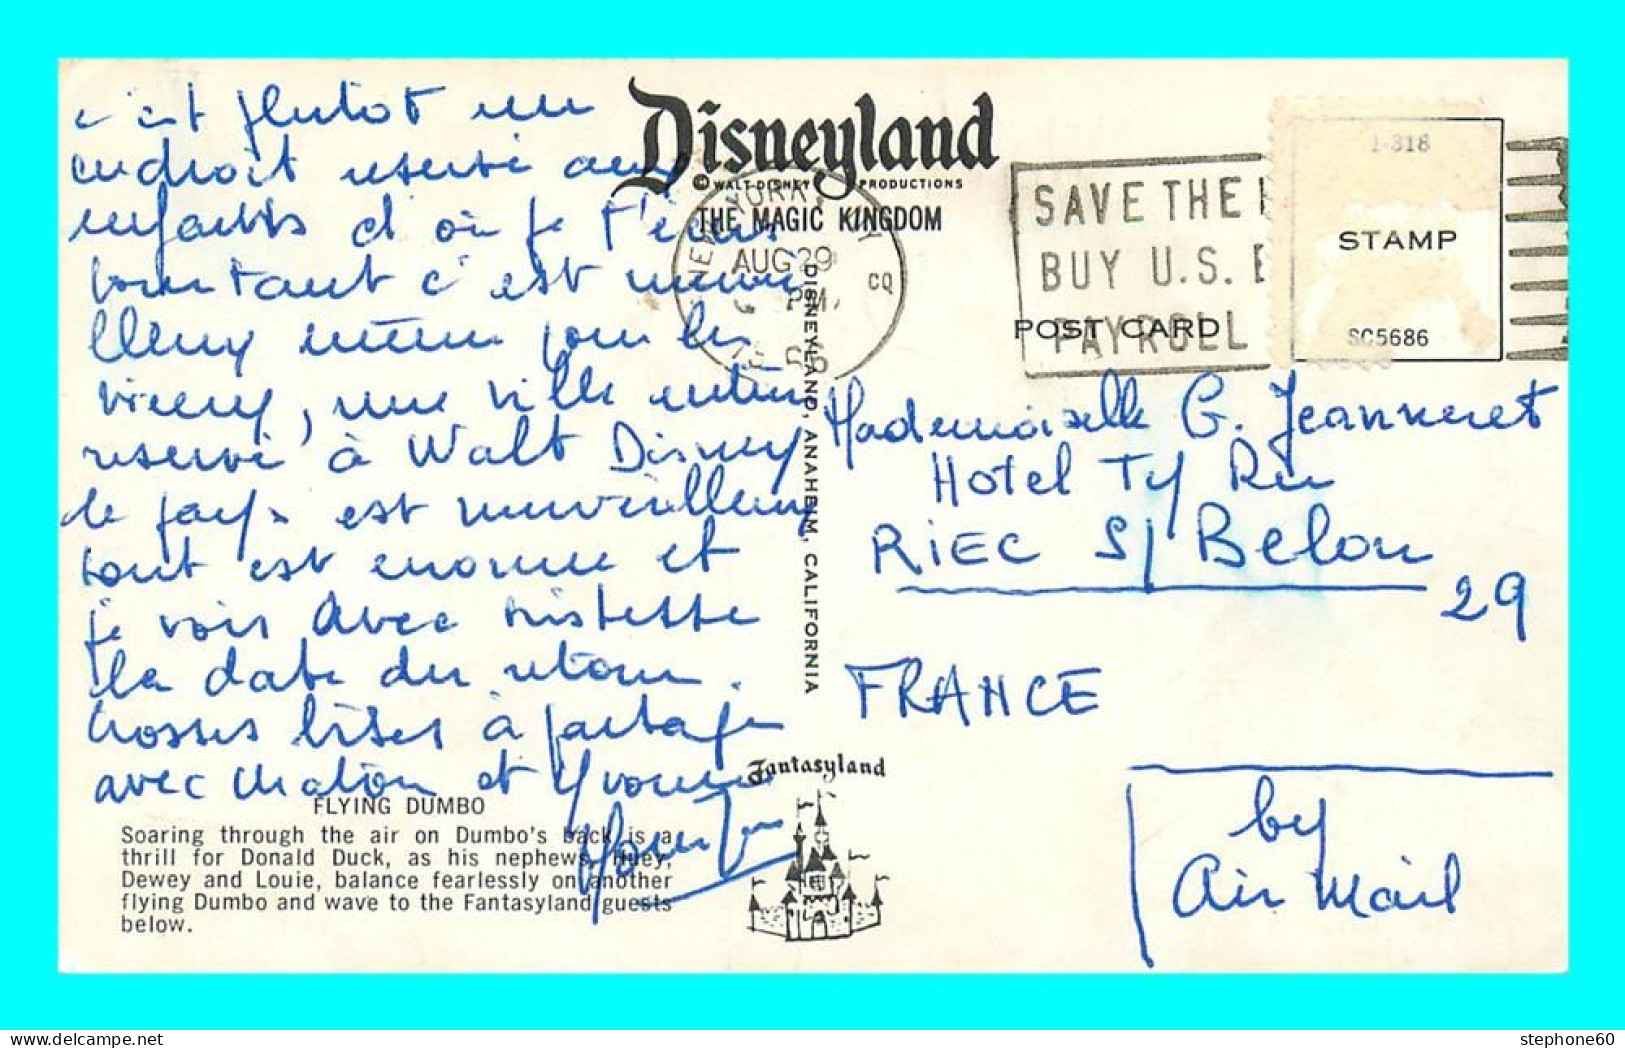 c'est plutot un
endroit reservé aux
enfants d'où je t'écris
pourtant c'est mervei
lleux même pour les
vieux, une ville entière
reservé à Walt Disney
le pays est merveilleux
tout est enorme et
je vois avec tristesse
la date du retour.
Grosses bises à partager
avec et Yvonne
Disneyland
© WALT DISNEY PRODUCTIONS
THE MAGIC KINGDOM
NEW YORK, N.Y.
AUG 29
PM
CQ
SAVE THE
BUY U.S.
PAYROLL
POST CARD
1-318
STAMP
SC5686
DISNEYLAND, ANAHEIM, CALIFORNIA
Mademoiselle G. Jeanneret
Hotel Ty Ru
RIEC S/ Belon
29
FRANCE
by
Air Mail
Fantasyland
FLYING DUMBO
Soaring through the air on Dumbo's back is a
thrill for Donald Duck, as his nephews, Huey,
Dewey and Louie, balance fearlessly on another
flying Dumbo and wave to the Fantasyland guests
below.
stephone60